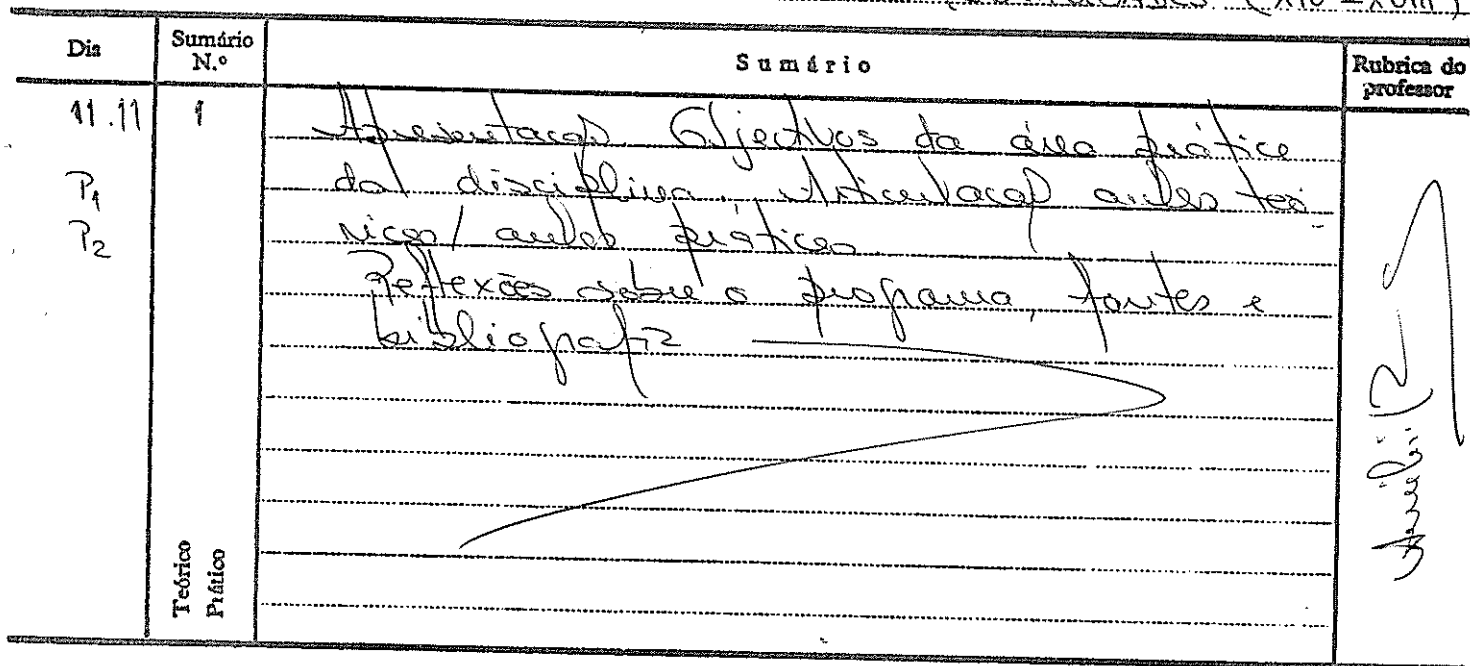 (XIV-XVIII)
Dia
Sumário N.º
Sumário
Rubrica do professor
11.11
1
P1
P2
Apresentação. Objectivos da área prática
da disciplina. Articulação aulas teó-
ricas / aulas práticas.
Reflexões sobre o programa, fontes e
bibliografia
Teórico
Prático